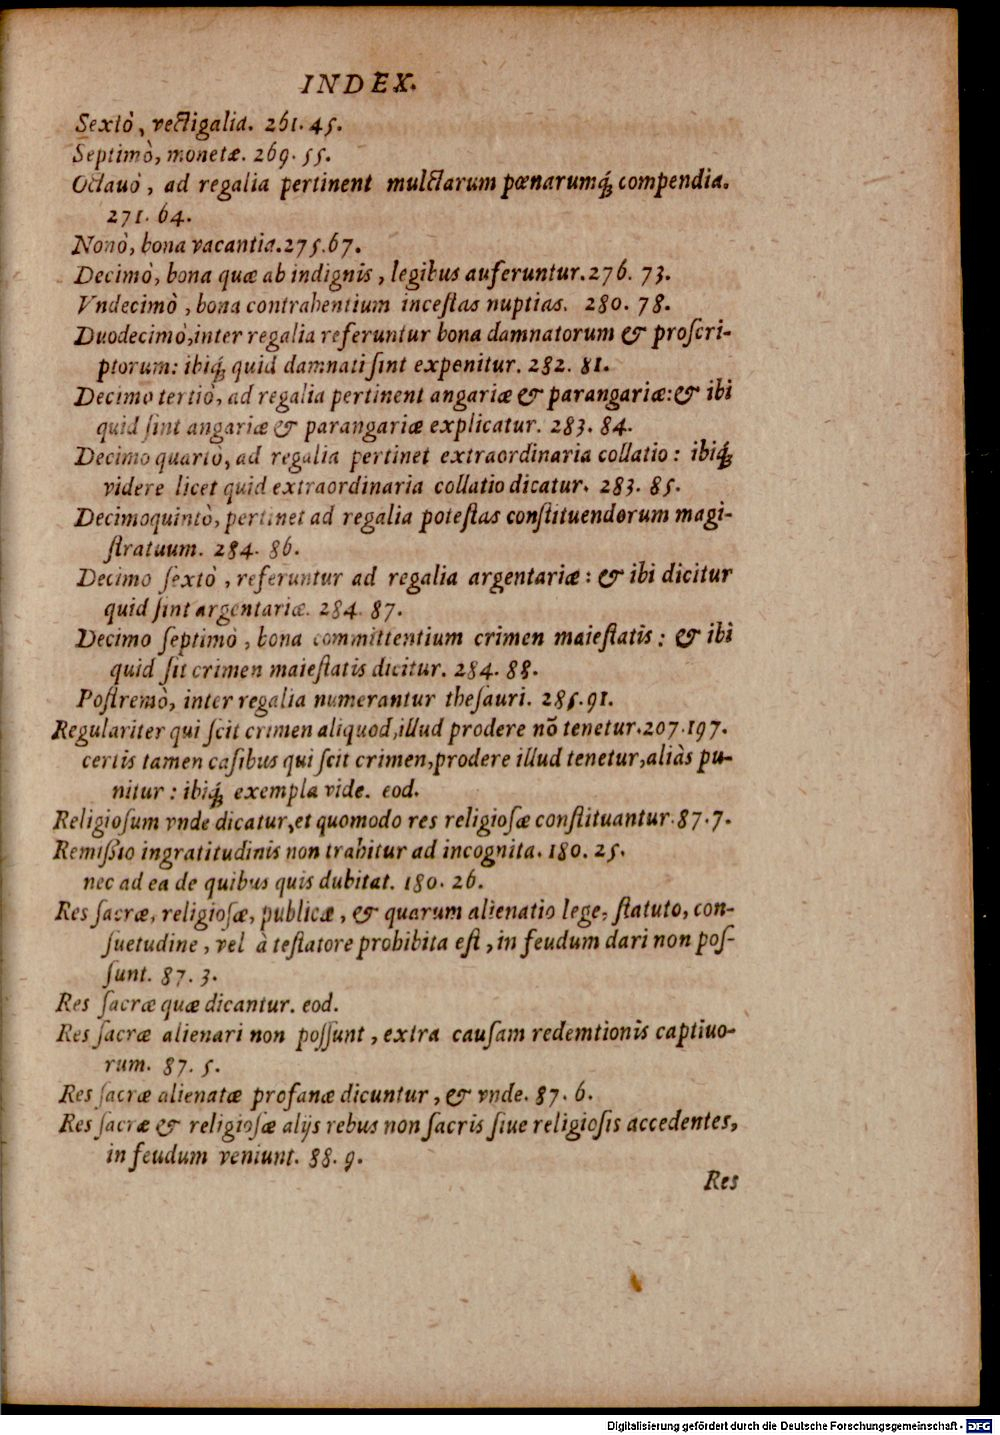 INDEX.
Sextò, vectigalia. 261. 45.
Septimò, monetæ. 269. 55.
Octauò, ad regalia pertinent mulctarum pœnarumq́; compendia.
271. 64.
Nonò, bona vacantia. 275. 67.
Decimò, bona quæ ab indignis, legibus auferuntur. 276. 73.
Vndecimò, bona contrahentium incestas nuptias. 280. 78.
Duodecimò, inter regalia referuntur bona damnatorum & proſcri-
ptorum: ibiq́; quid damnati ſint exponitur. 282. 81.
Decimo tertiò, ad regalia pertinent angariæ & parangariæ: & ibi
quid ſint angariæ & parangariæ explicatur. 283. 84.
Decimo quartò, ad regalia pertinet extraordinaria collatio: ibiq́;
videre licet quid extraordinaria collatio dicatur. 283. 85.
Decimoquintò, pertinet ad regalia poteſtas conſtituendorum magi-
ſtratuum. 284. 86.
Decimo ſextò, referuntur ad regalia argentariæ: & ibi dicitur
quid ſint argentariæ. 284. 87.
Decimo ſeptimò, bona committentium crimen maieſtatis: & ibi
quid ſit crimen maieſtatis dicitur. 284. 88.
Poſtremò, inter regalia numerantur theſauri. 285. 91.
Regulariter qui ſcit crimen aliquod, illud prodere nō tenetur. 207. 197.
certis tamen caſibus qui ſcit crimen, prodere illud tenetur, aliàs pu-
nitur: ibiq́; exempla vide. eod.
Religioſum vnde dicatur, et quomodo res religioſæ conſtituantur. 87. 7.
Remißio ingratitudinis non trahitur ad incognita. 180. 25.
nec ad ea de quibus quis dubitat. 180. 26.
Res ſacræ, religioſæ, publicæ, & quarum alienatio lege, ſtatuto, con-
ſuetudine, vel à teſtatore prohibita eſt, in feudum dari non poſ-
ſunt. 87. 3.
Res ſacræ quæ dicantur. eod.
Res ſacræ alienari non poſſunt, extra cauſam redemtionis captiuo-
rum. 87. 5.
Res ſacræ alienatæ profanæ dicuntur, & vnde. 87. 6.
Res ſacræ & religioſæ alijs rebus non ſacris ſiue religioſis accedentes,
in feudum veniunt. 88. 9.
Res
Digitalisierung gefördert durch die Deutsche Forschungsgemeinschaft - DFG